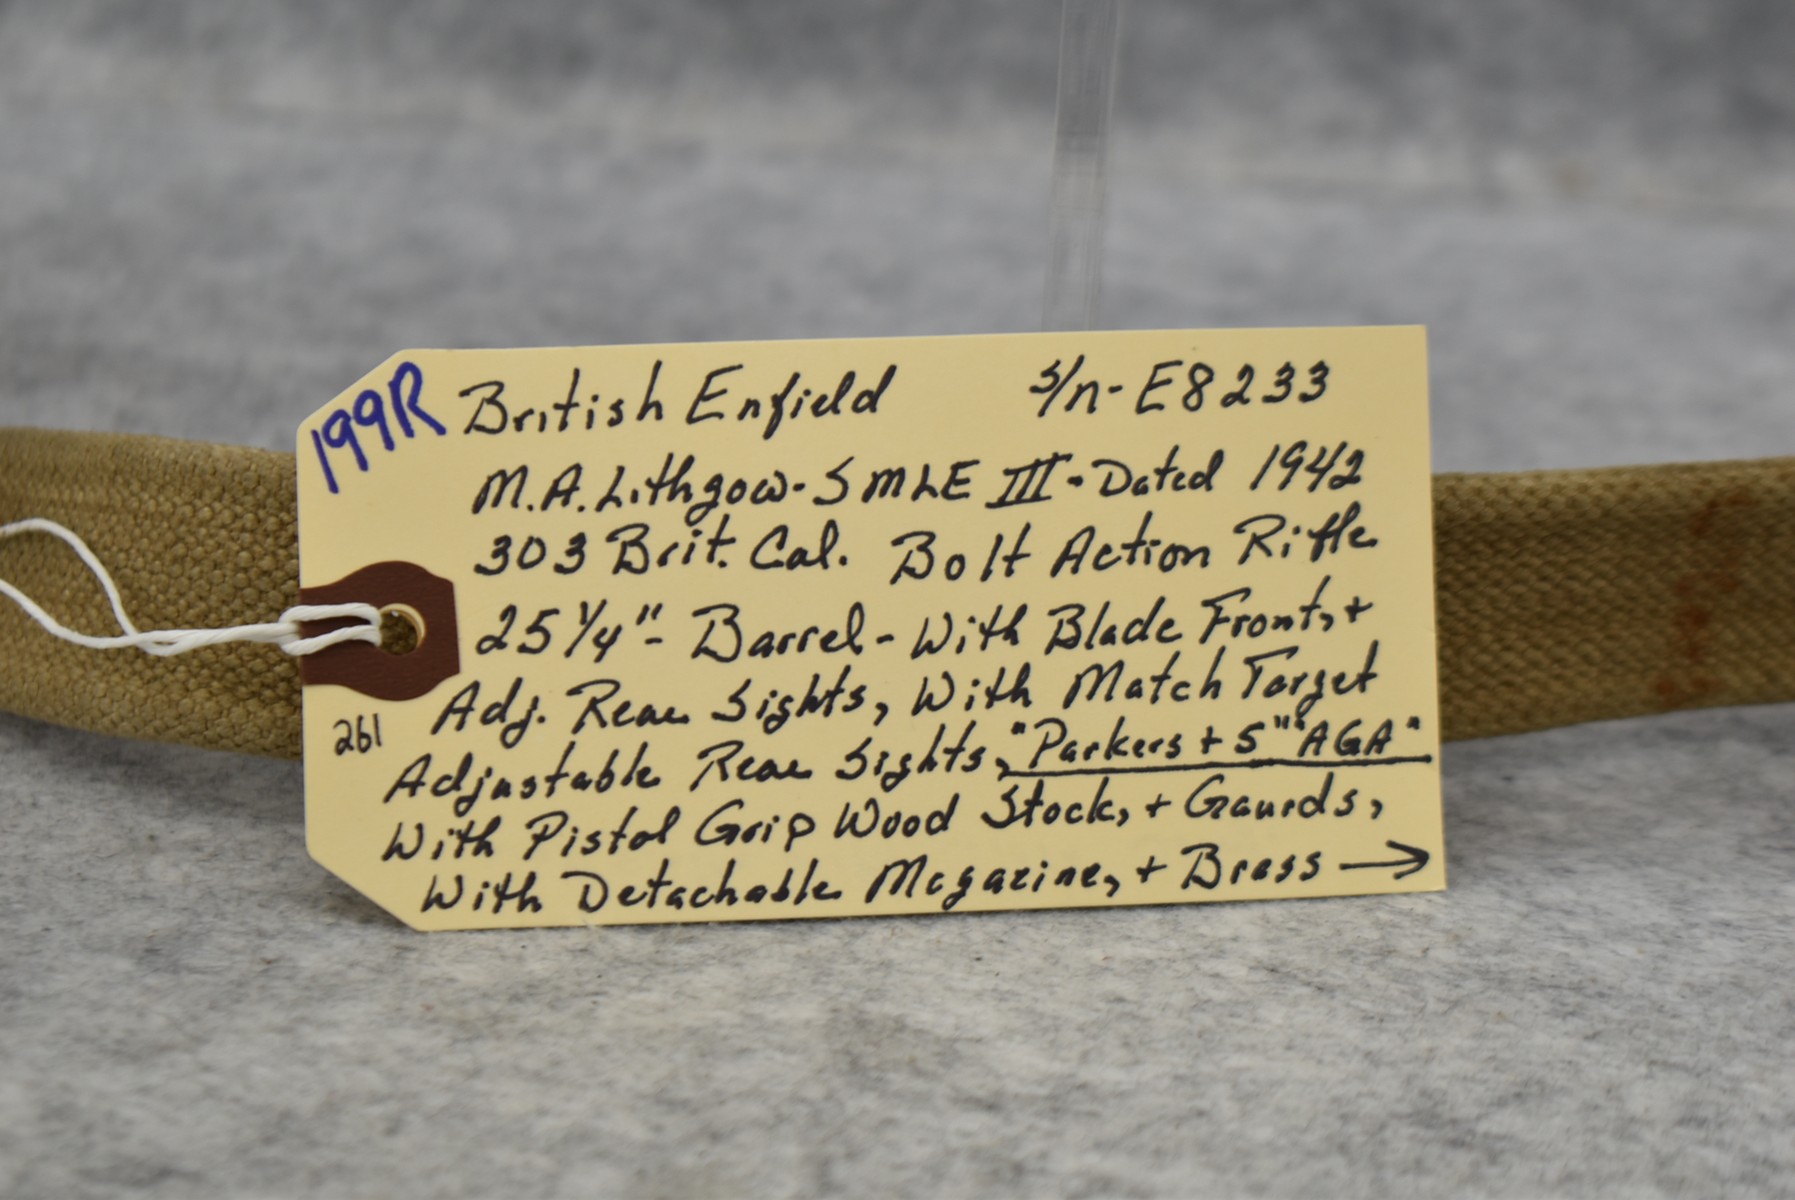 199R
British Enfield S/n-E8233
M.A. Lithgow-SMLE III-Dated 1942
303 Brit. Cal. Bolt Action Rifle
25 1/4"- Barrel-With Blade Front, +
Adj. Rear Sights, With Match Target
261
Adjustable Rear Sights, "Parkers + S" "AGA"
With Pistol Grip Wood Stock, + Gaurds,
With Detachable Magazine, + Brass →